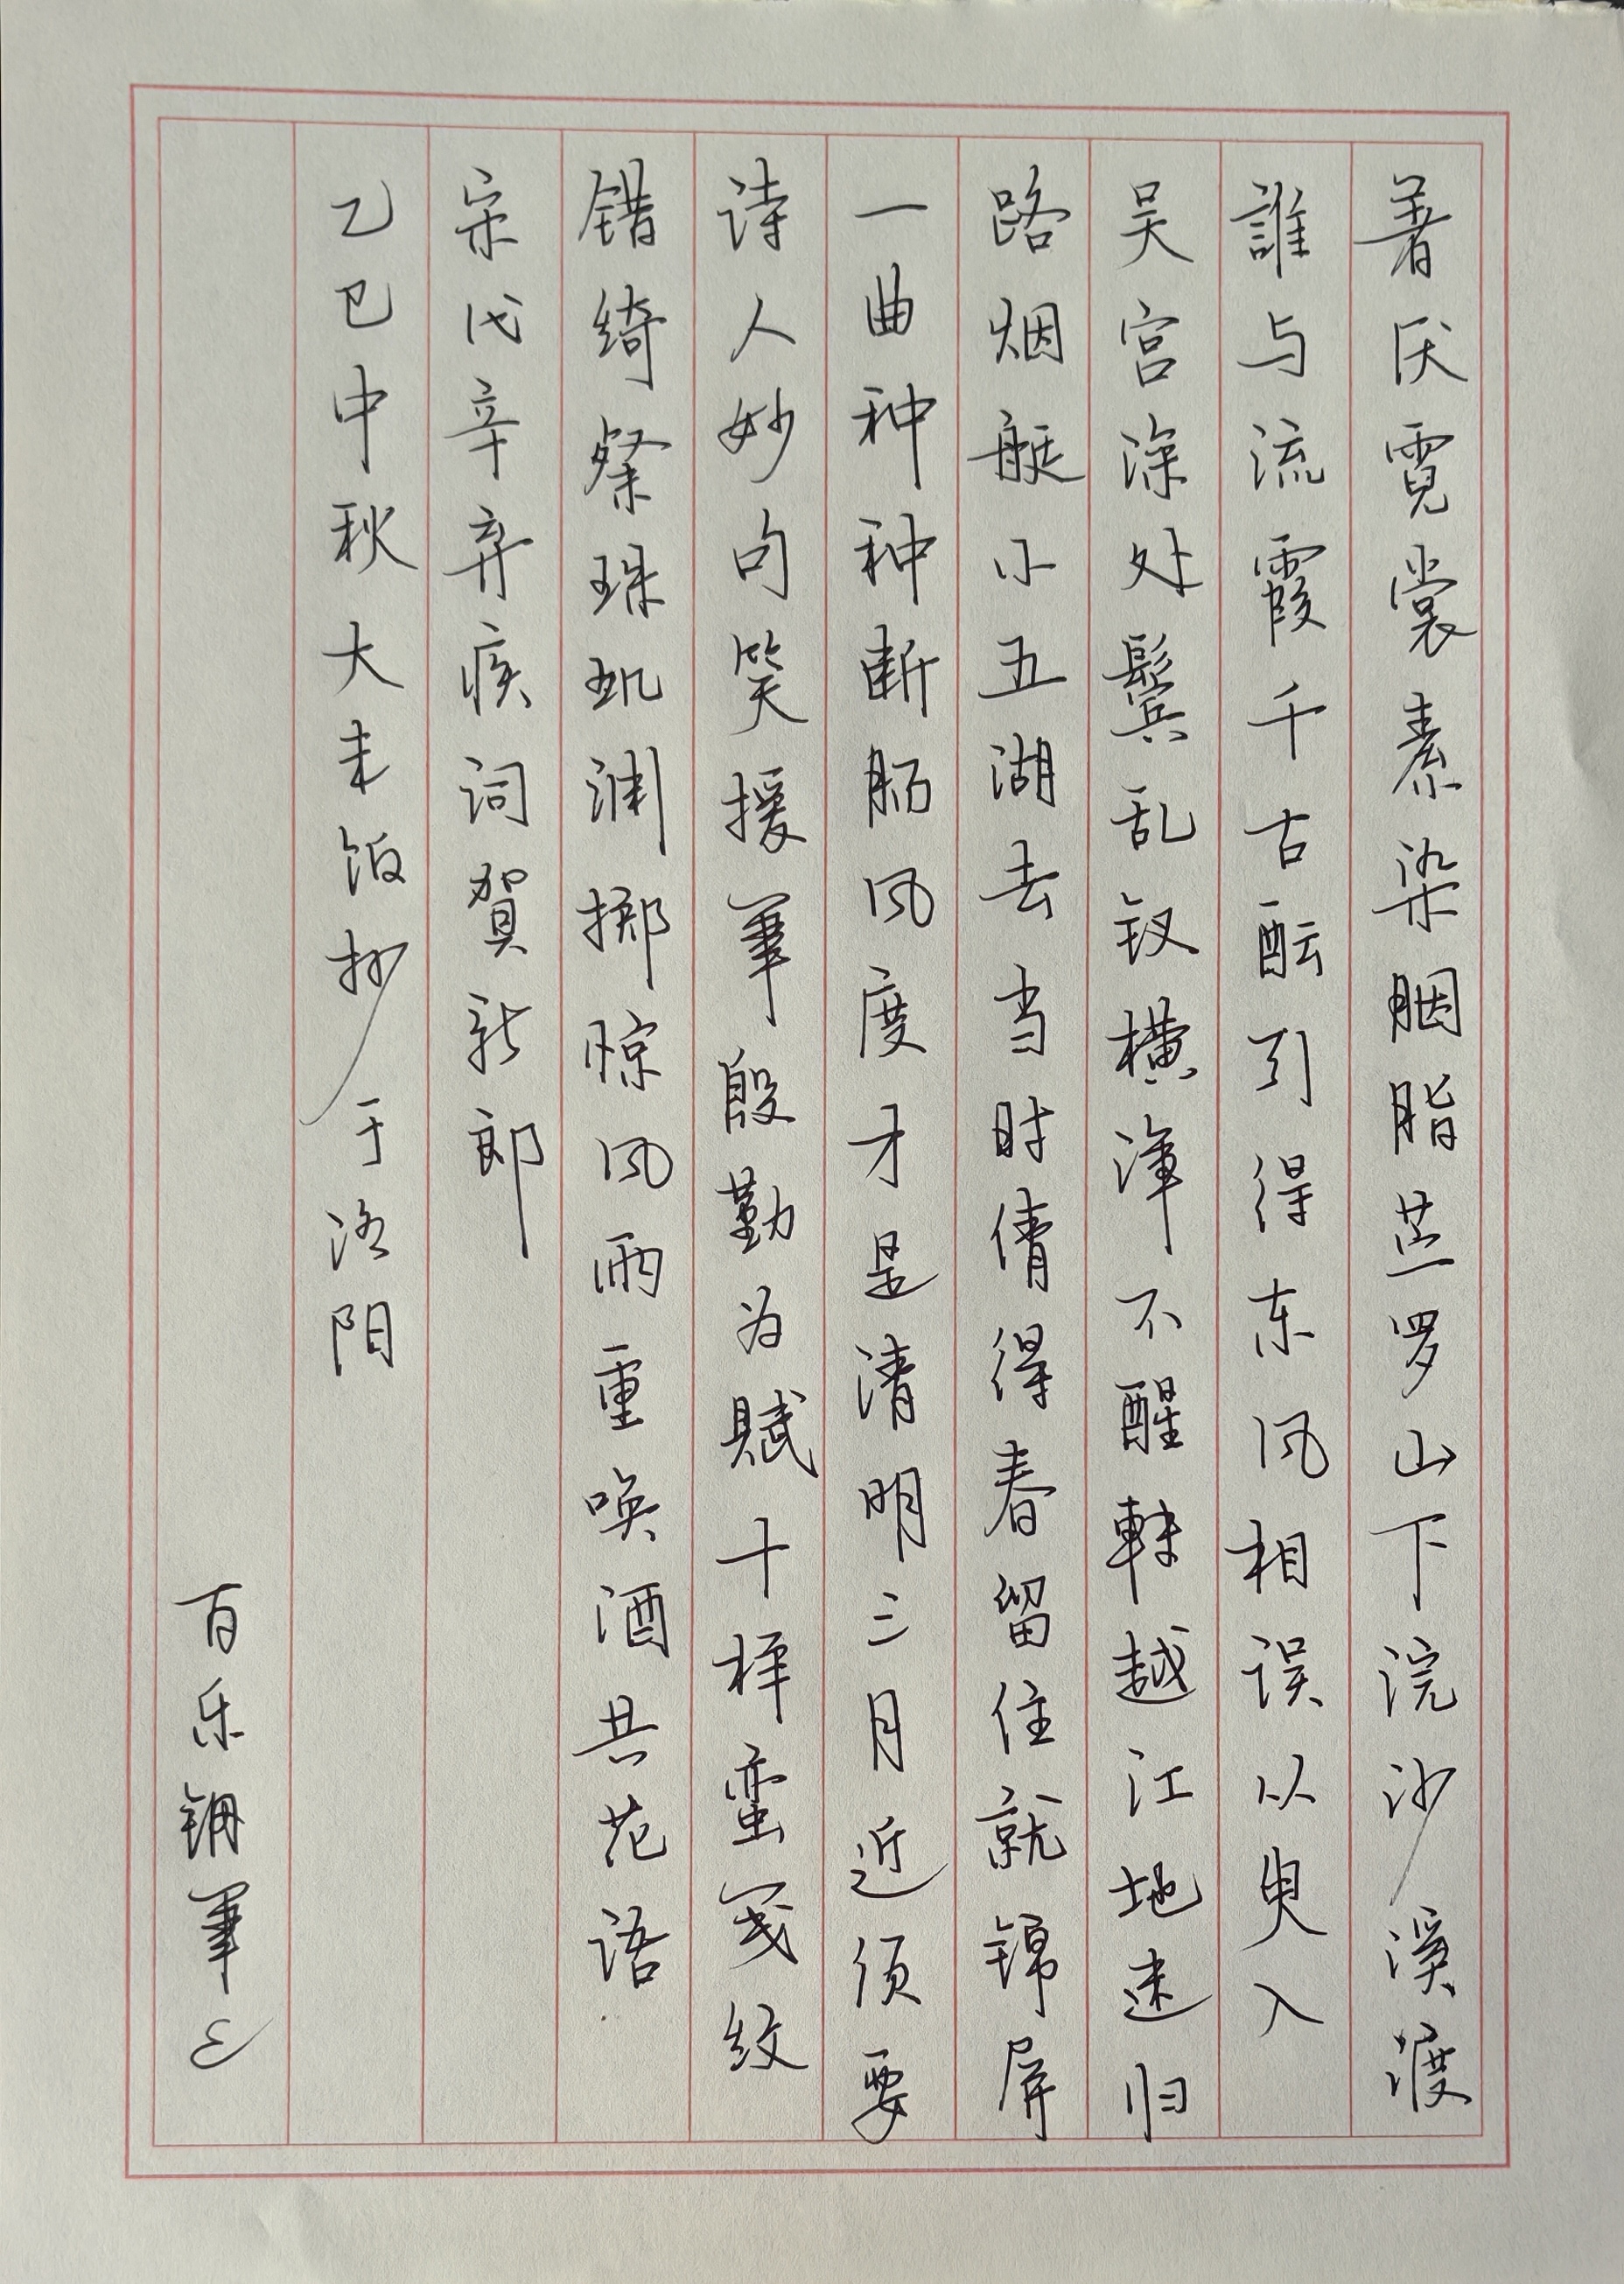 著厌霓裳素染胭脂苎罗山下浣沙溪渡
誰与流霞千古酝引得东风相误从臾入
吴宫深处鬓乱钗横渾不醒转越江地迷归
路烟艇小五湖去当时倩得春留住就锦屏
一曲种种断肠风度才是清明三月近须要
诗人妙句笑援筆殷勤为賦十样蛮笺纹
错绮粲珠玑渊掷惊风雨重唤酒共花语
宋代辛弃疾词賀新郎
乙巳中秋大米饭抄于洛阳
百乐钢筆